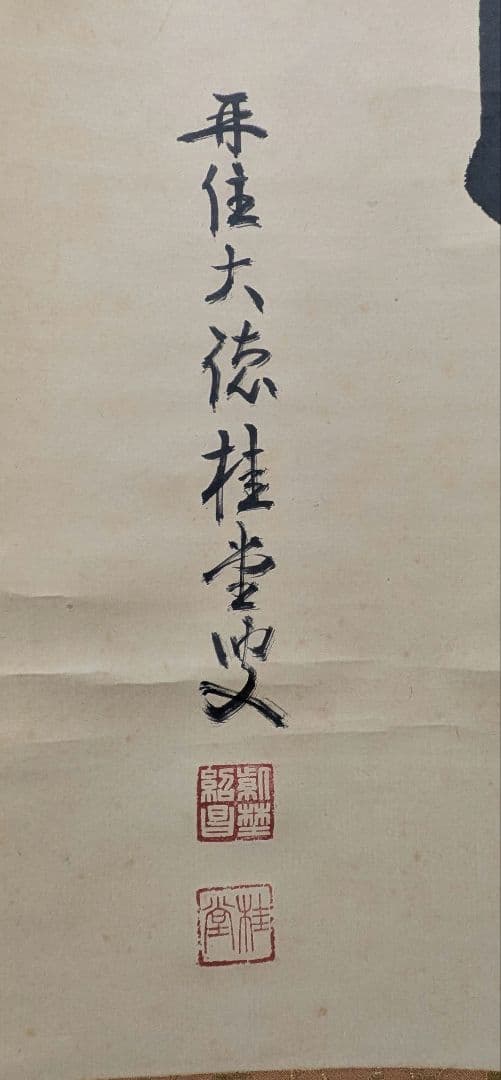 再住大徳桂堂叟
紫野
紹昌
桂堂